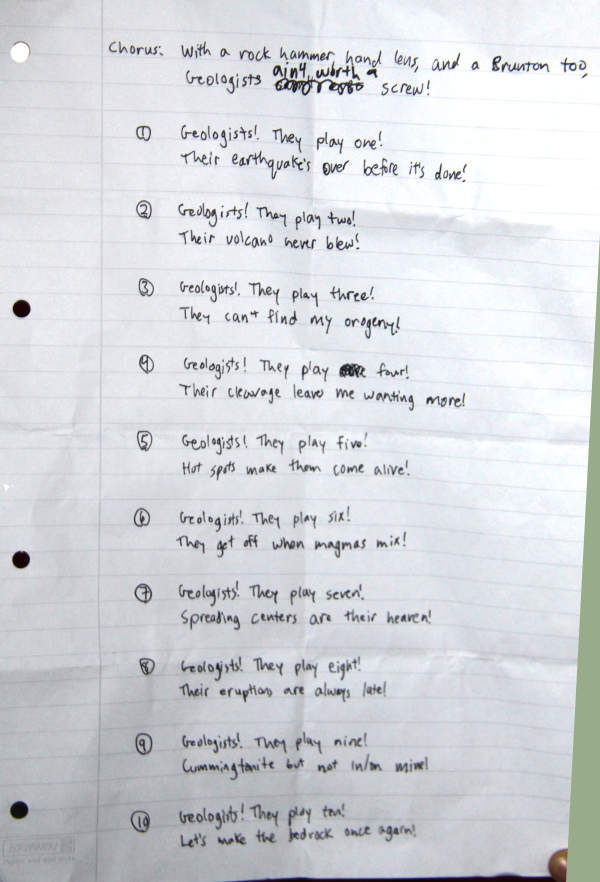 Chorus: With a rock hammer hand lens, and a Brunton too,
Geologists ain't worth a screw!
① Geologists! They play one!
Their earthquake's over before it's done!
② Geologists! They play two!
Their volcano never blew!
③ Geologists! They play three!
They can't find my orogeny!
④ Geologists! They play four!
Their cleavage leaves me wanting more!
⑤ Geologists! They play five!
Hot spots make them come alive!
⑥ Geologists! They play six!
They get off when magmas mix!
⑦ Geologists! They play seven!
Spreading centers are their heaven!
⑧ Geologists! They play eight!
Their eruptions are always late!
⑨ Geologists! They play nine!
Cummingtonite but not in/on mine!
⑩ Geologists! They play ten!
Let's make the bedrock once again!